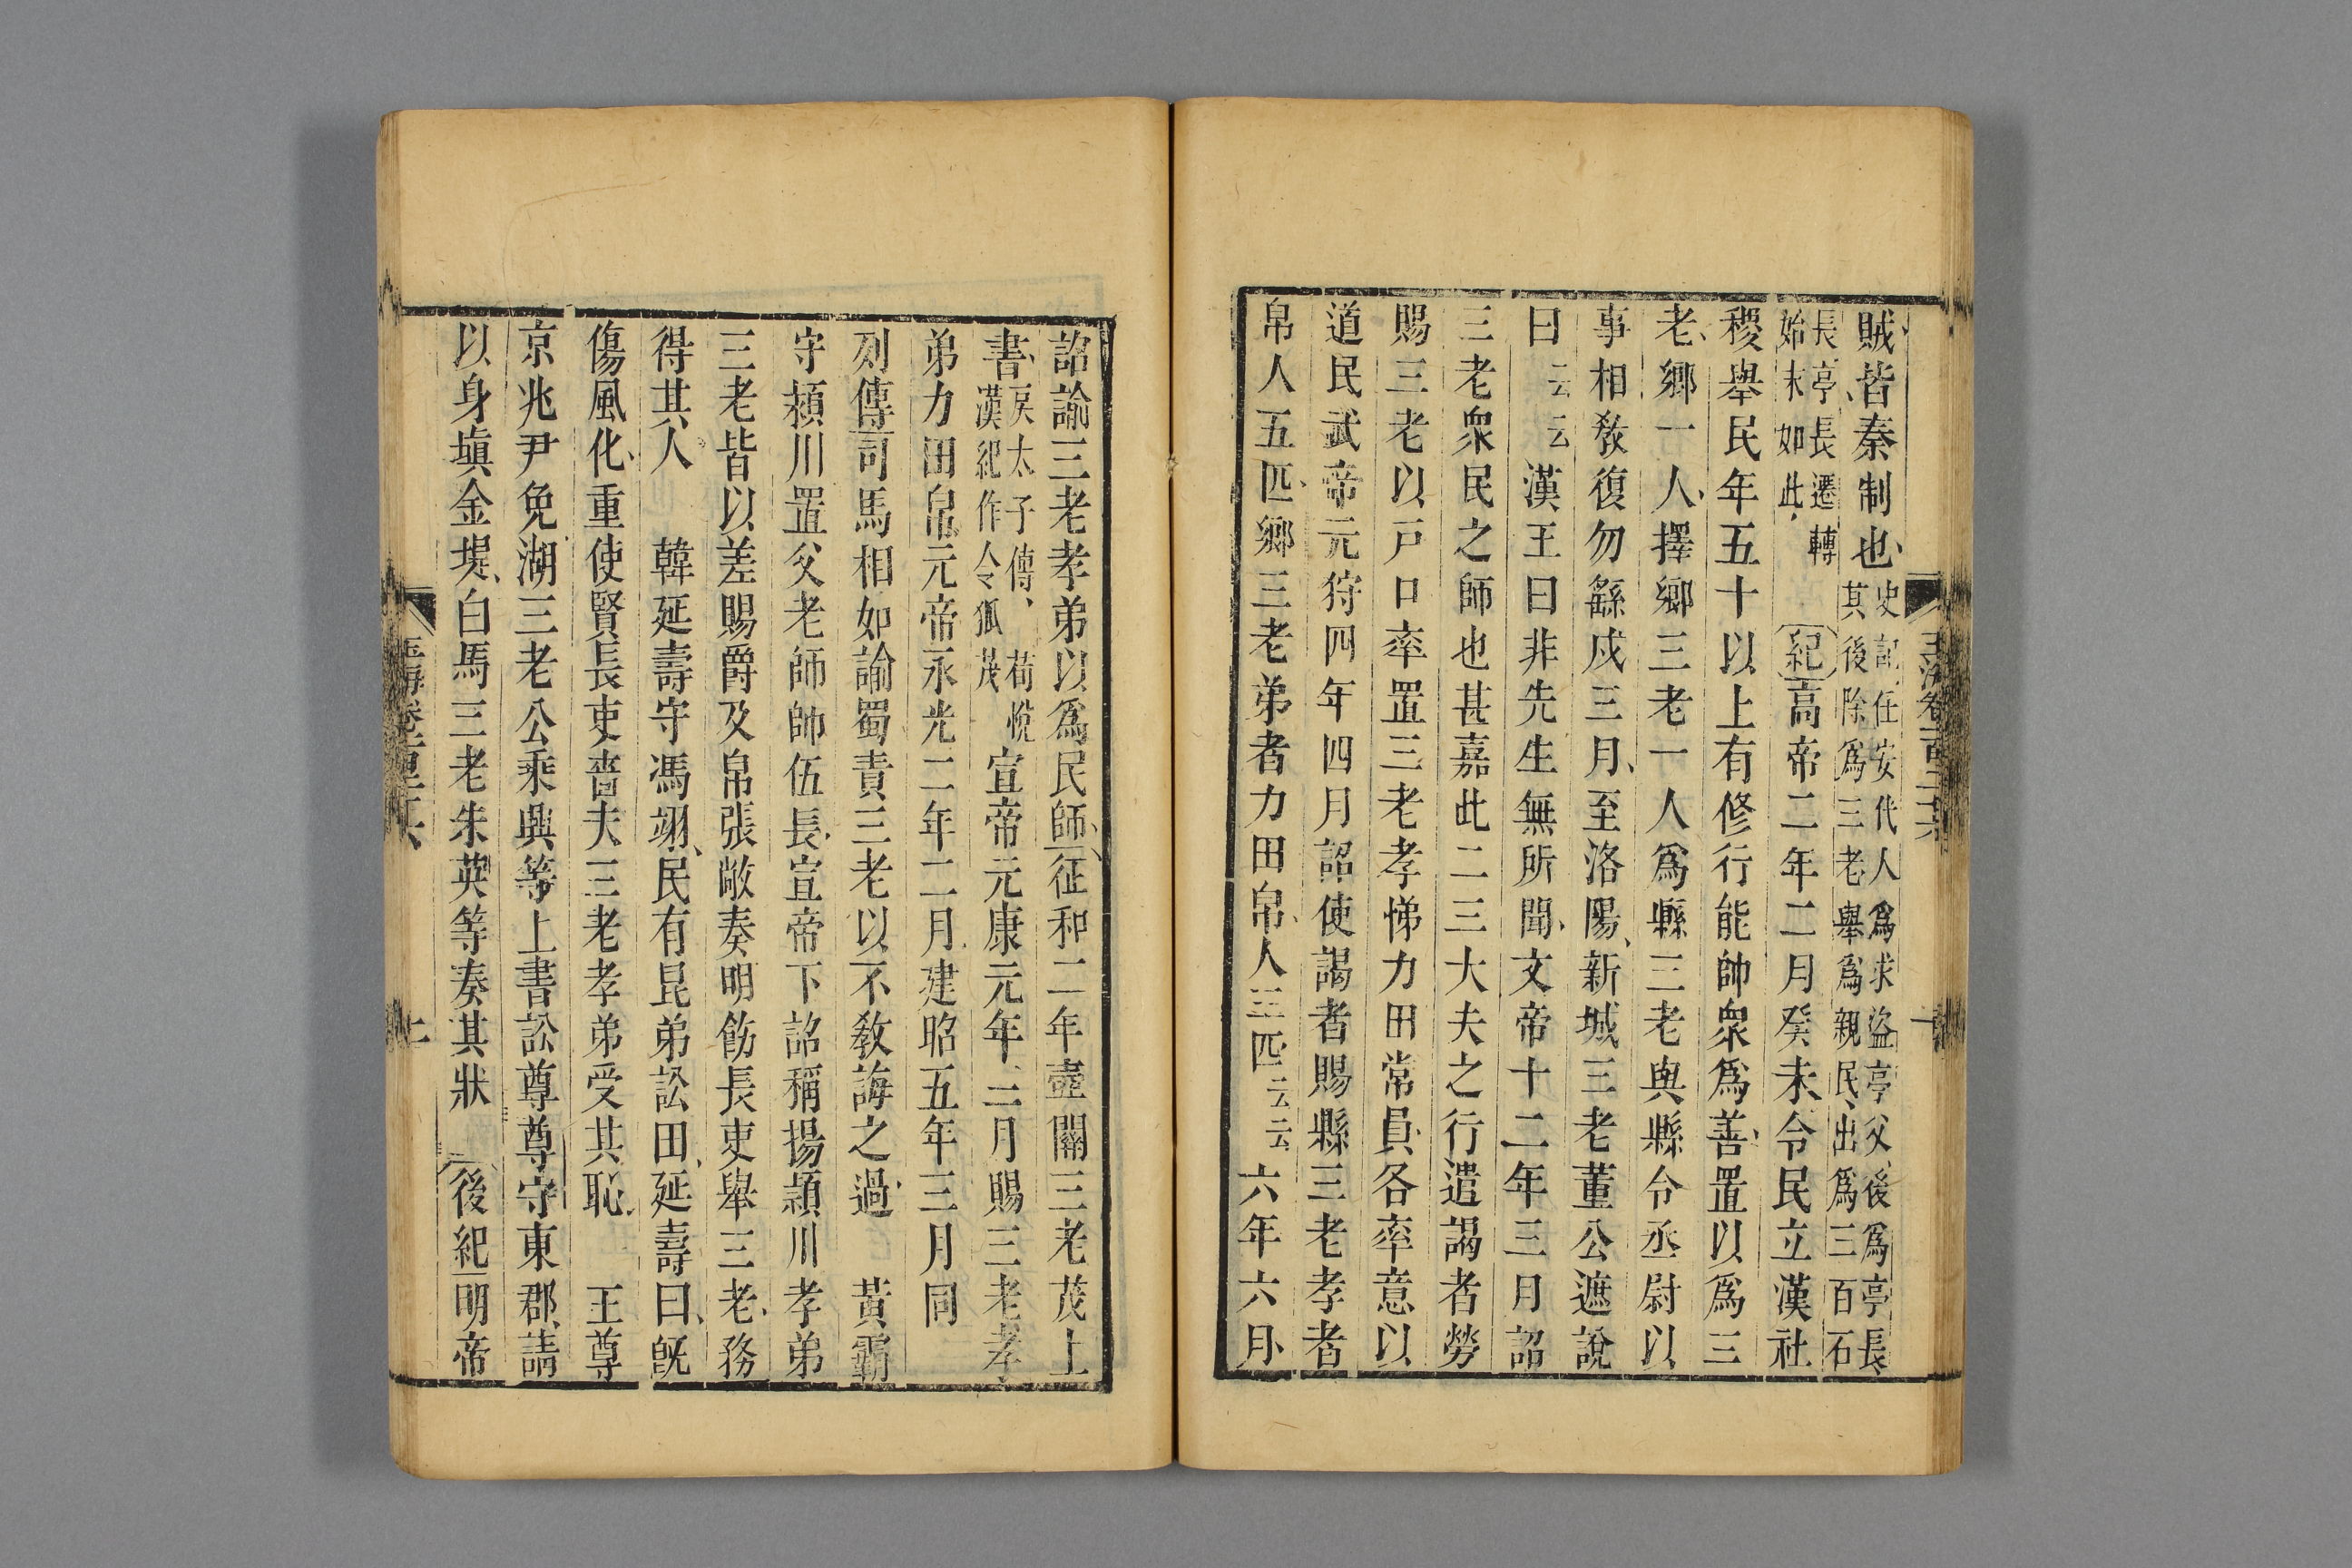 賊皆秦制也史記任安代人爲求盜亭父後爲亭長
其後除爲三老舉爲親民出爲三百石
長亭長遷轉
始末如此紀高帝二年二月癸未令民立漢社
稷舉民年五十以上有修行能帥衆爲善置以爲三
老鄉一人擇鄉三老一人爲縣三老與縣令丞尉以
事相敎復勿繇戍三月至洛陽新城三老董公遮說
曰云云漢王曰非先生無所聞文帝十二年三月詔
三老衆民之師也甚嘉此二三大夫之行遣謁者勞
賜三老以戸口率置三老孝悌力田常員各率意以
道民武帝元狩四年四月詔使謁者賜縣三老孝者
帛人五匹鄉三老弟者力田帛人三匹云云六年六月
詔諭三老孝弟以爲民師征和二年壼關三老茂上
書戾太子傳荀悅
漢紀作令狐茂宣帝元康元年三月賜三老孝
弟力田帛元帝永光二年二月建昭五年三月同
列傳司馬相如諭蜀責三老以不敎誨之過 黃霸
守潁川置父老師帥伍長宣帝下詔稱揚潁川孝弟
三老皆以差賜爵及帛張敞奏明飭長吏舉三老務
得其人 韓延壽守馮翊民有昆弟訟田延壽曰旣
傷風化重使賢長吏嗇夫三老孝弟受其恥 王尊
京兆尹免湖三老公乘興等上書訟尊尊守東郡請
以身塡金堤白馬三老朱英等奏其狀 後紀明帝